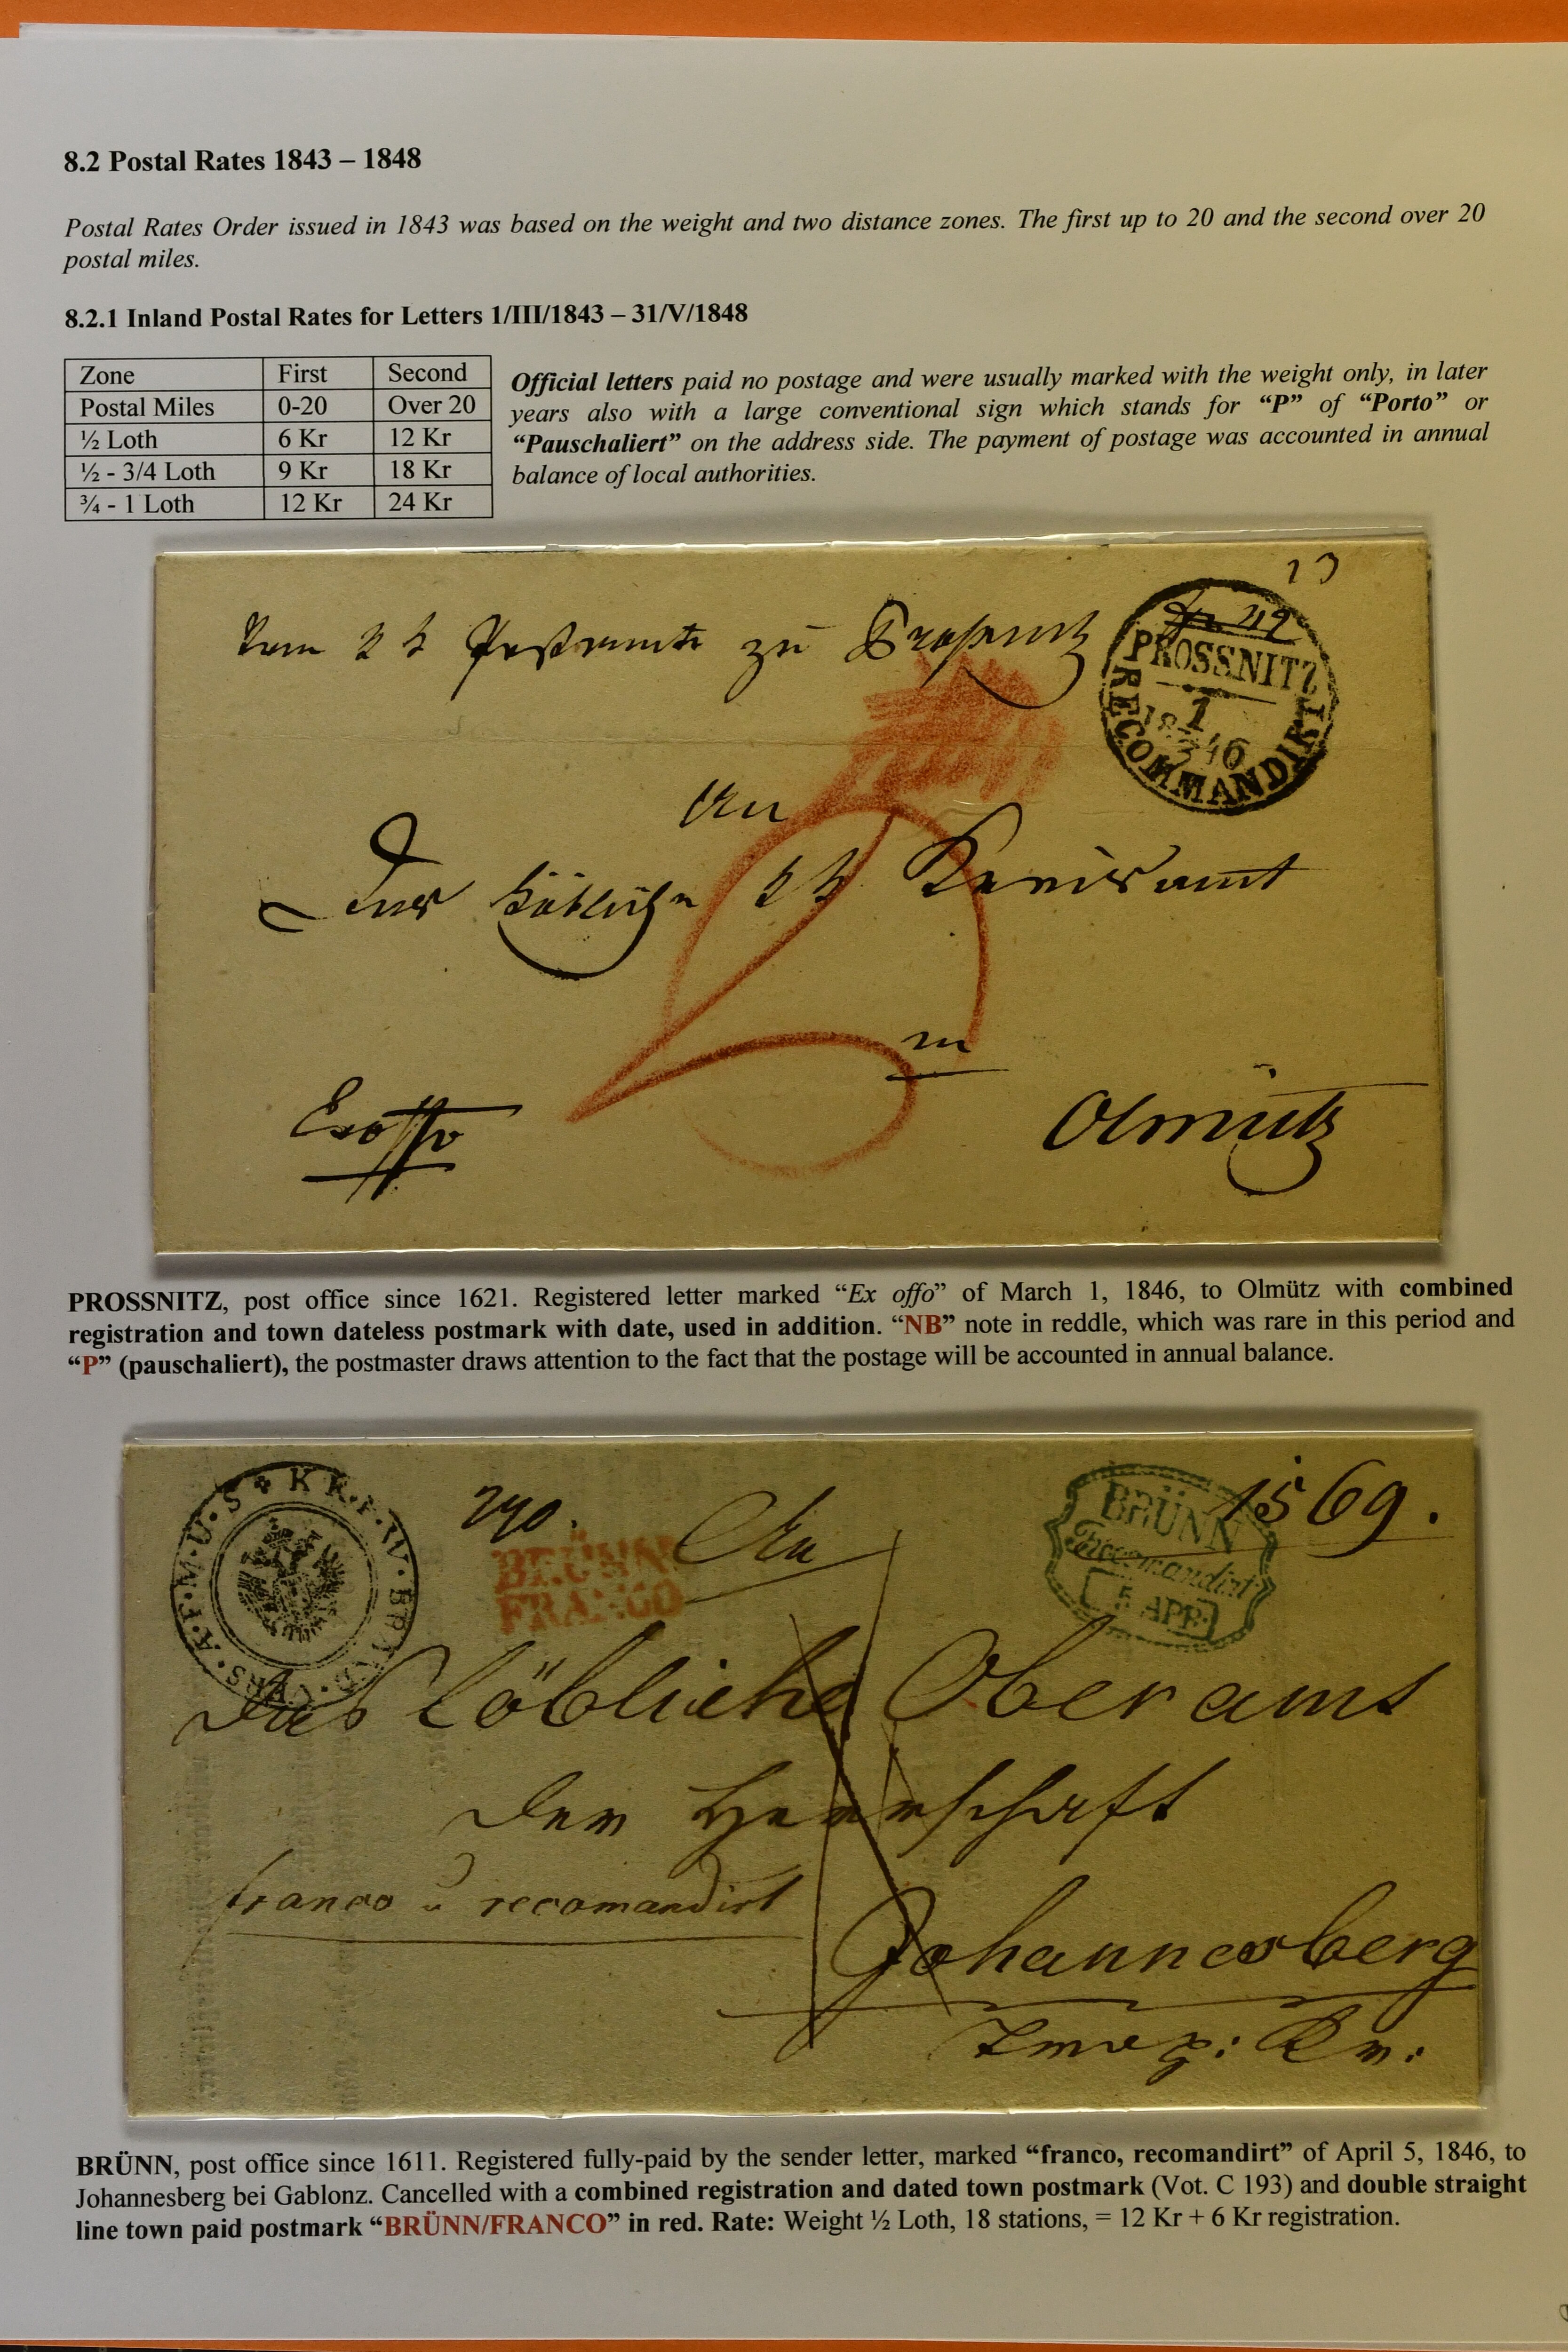 8.2 Postal Rates 1843 – 1848
Postal Rates Order issued in 1843 was based on the weight and two distance zones. The first up to 20 and the second over 20
postal miles.
8.2.1 Inland Postal Rates for Letters 1/III/1843 – 31/V/1848
Zone First Second
Postal Miles 0-20 Over 20
½ Loth 6 Kr 12 Kr
½ - 3/4 Loth 9 Kr 18 Kr
¾ - 1 Loth 12 Kr 24 Kr
Official letters paid no postage and were usually marked with the weight only, in later
years also with a large conventional sign which stands for “P” of “Porto” or
“Pauschaliert” on the address side. The payment of postage was accounted in annual
balance of local authorities.
Vom k k Postamte zu Prossnitz
PROSSNITZ
1
18 3 46
RECOMMANDIRT
An
Das Löbliche k k Kreisamt
in
Exoffo
Olmütz
PROSSNITZ, post office since 1621. Registered letter marked “Ex offo” of March 1, 1846, to Olmütz with combined
registration and town dateless postmark with date, used in addition. “NB” note in reddle, which was rare in this period and
“P” (pauschaliert), the postmaster draws attention to the fact that the postage will be accounted in annual balance.
290.
An
1569.
BRÜNN
FRANCO
BRÜNN
Recomandirt
5 APR.
Das Löbliche Oberamt
der Herrschaft
franco u recomandirt
Johannesberg
BRÜNN, post office since 1611. Registered fully-paid by the sender letter, marked “franco, recomandirt” of April 5, 1846, to
Johannesberg bei Gablonz. Cancelled with a combined registration and dated town postmark (Vot. C 193) and double straight
line town paid postmark “BRÜNN/FRANCO” in red. Rate: Weight ½ Loth, 18 stations, = 12 Kr + 6 Kr registration.